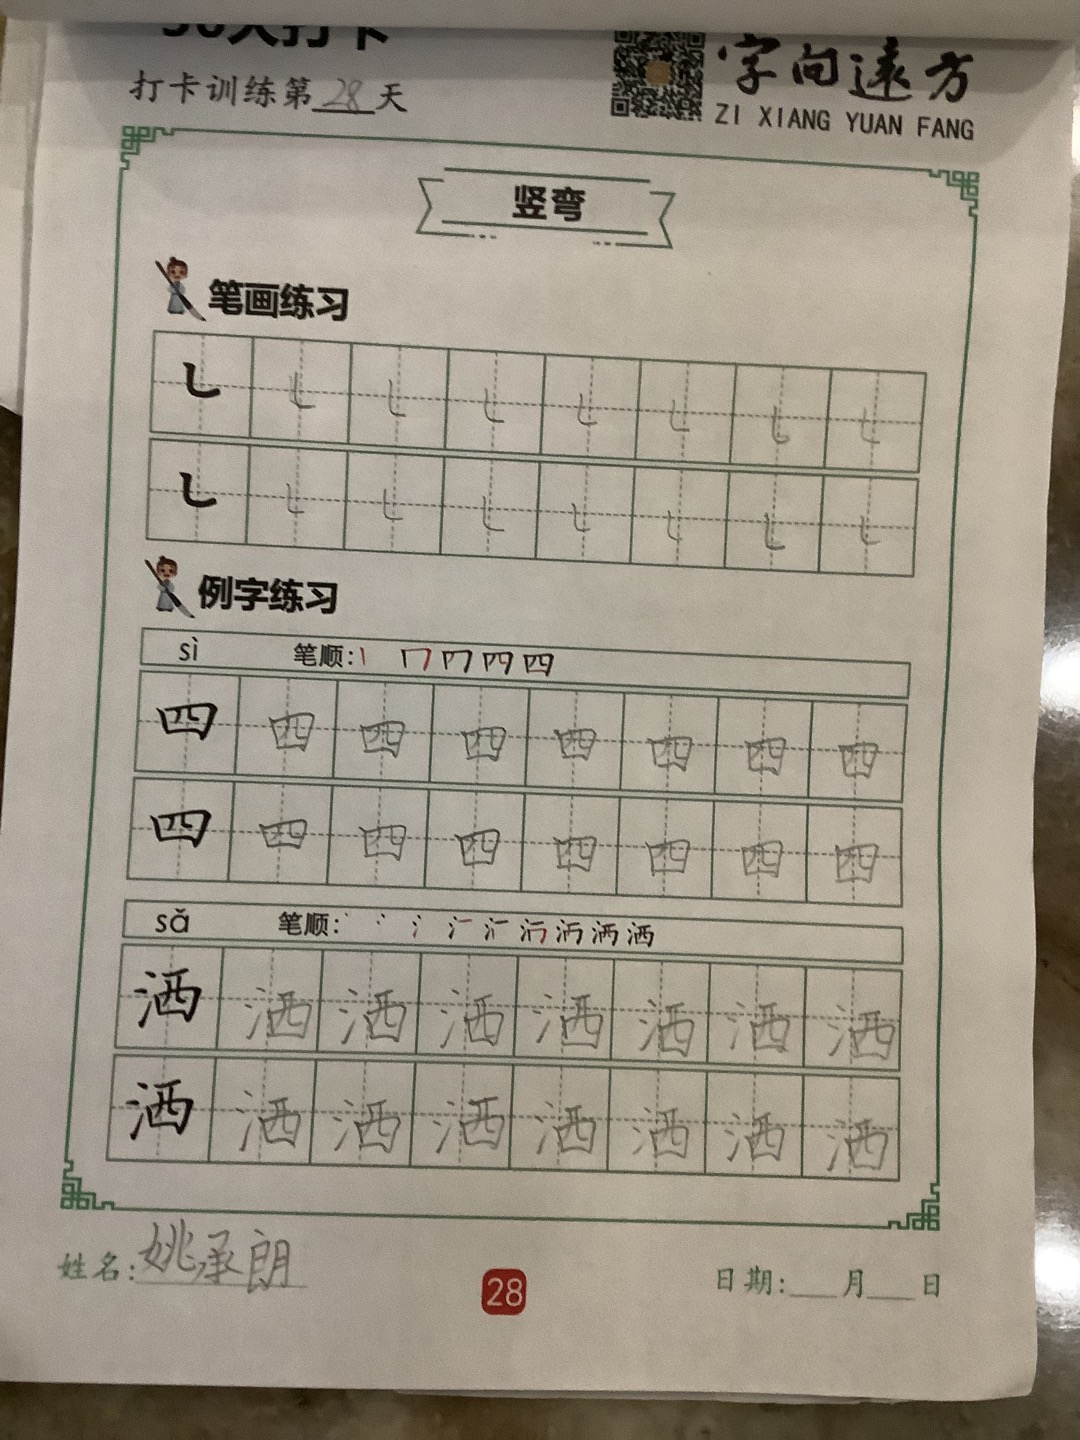 打卡训练第28天
字向远方
ZI XIANG YUAN FANG
竖弯
笔画练习
㇄ ㇄ ㇄ ㇄ ㇄ ㇄ ㇄ ㇄
㇄ ㇄ ㇄ ㇄ ㇄ ㇄ ㇄ ㇄
例字练习
sì 笔顺:
四 四 四 四 四 四 四 四
四 四 四 四 四 四 四 四
sǎ 笔顺:
洒 洒 洒 洒 洒 洒 洒 洒
洒 洒 洒 洒 洒 洒 洒 洒
姓名:姚承朗
28
日期:___月___日